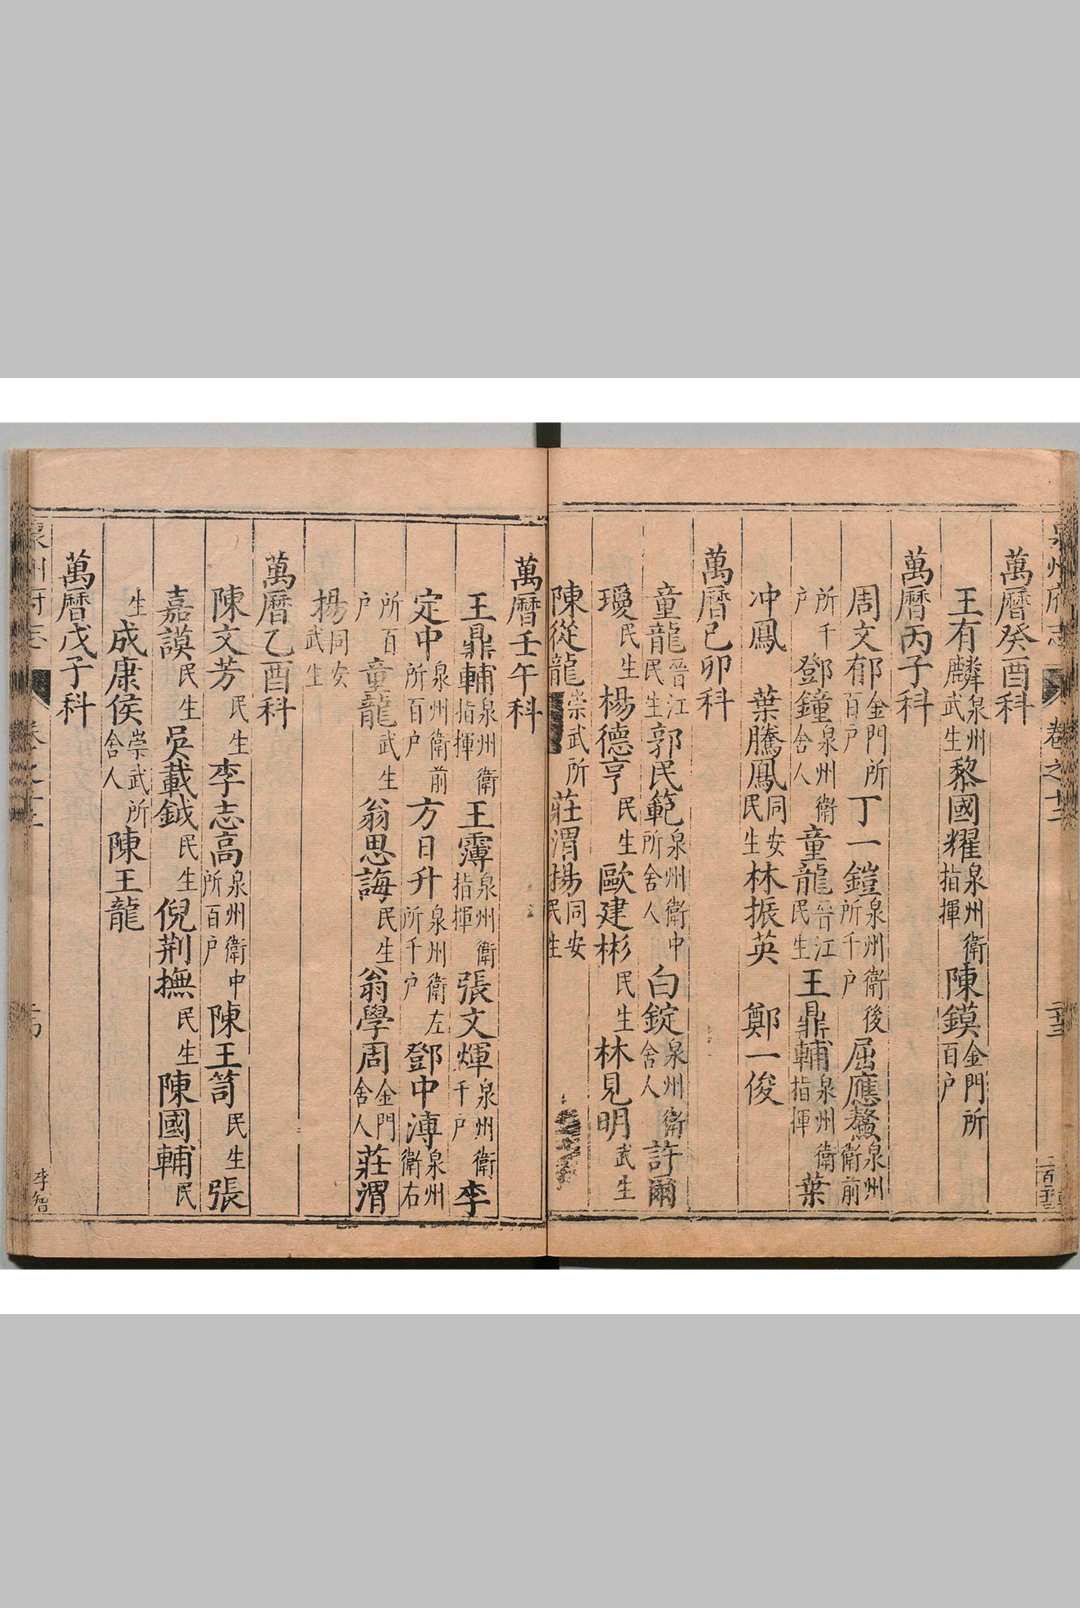 泉州府志 卷之十三
萬曆癸酉科
王有麟泉州衛武生 黎國耀泉州衛指揮 陳鏌金門所百户
萬曆丙子科
周文郁金門所百户 丁一鎧泉州衛後所千户 屈應鰲泉州衛前
所千户 鄧鐘泉州衛舍人 童龍晉江民生 王鼎輔泉州衛指揮 葉
冲鳳 葉騰鳳同安民生 林振英 鄭一俊
萬曆己卯科
童龍晉江民生 郭民範泉州衛中所舍人 白錠泉州衛舍人 許爾
瑷民生 楊德亨民生 歐建彬民生 林見明武生
陳從龍崇武所 莊渭揚同安民生
萬曆壬午科
王鼎輔泉州衛指揮 王霔泉州衛指揮 張文煇泉州衛千户 李
定中泉州衛前所百户 方日升泉州衛左所千户 鄧中漙泉州衛右
所百户 童龍武生 翁思誨民生 翁學周金門舍人 莊渭
揚同安武生
萬曆乙酉科
陳文芳民生 李志高泉州衛中所百户 陳王笥民生 張
嘉謨民生 吳載鉞民生 倪荆撫民生 陳國輔民
生 成康侯崇武所舍人 陳王龍
萬曆戊子科
泉州府志
李智